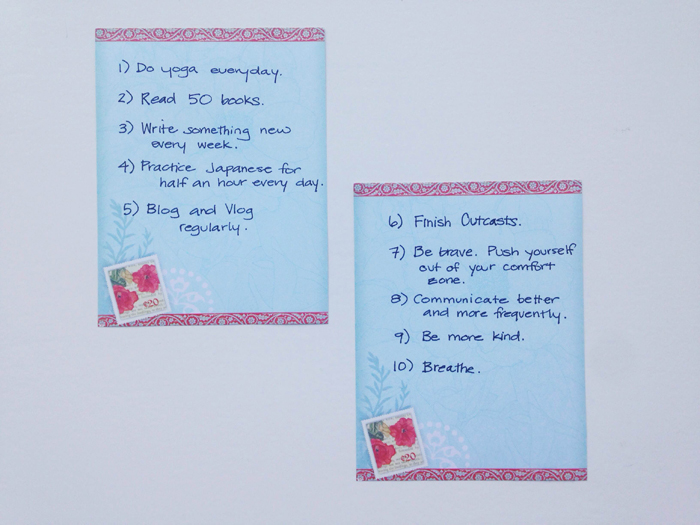 1) Do yoga everyday.
2) Read 50 books.
3) Write something new
every week.
4) Practice Japanese for
half an hour every day.
5) Blog and Vlog
regularly.
£20
6) Finish Outcasts.
7) Be brave. Push yourself
out of your comfort
zone.
8) Communicate better
and more frequently.
9) Be more kind.
10) Breathe.
£20